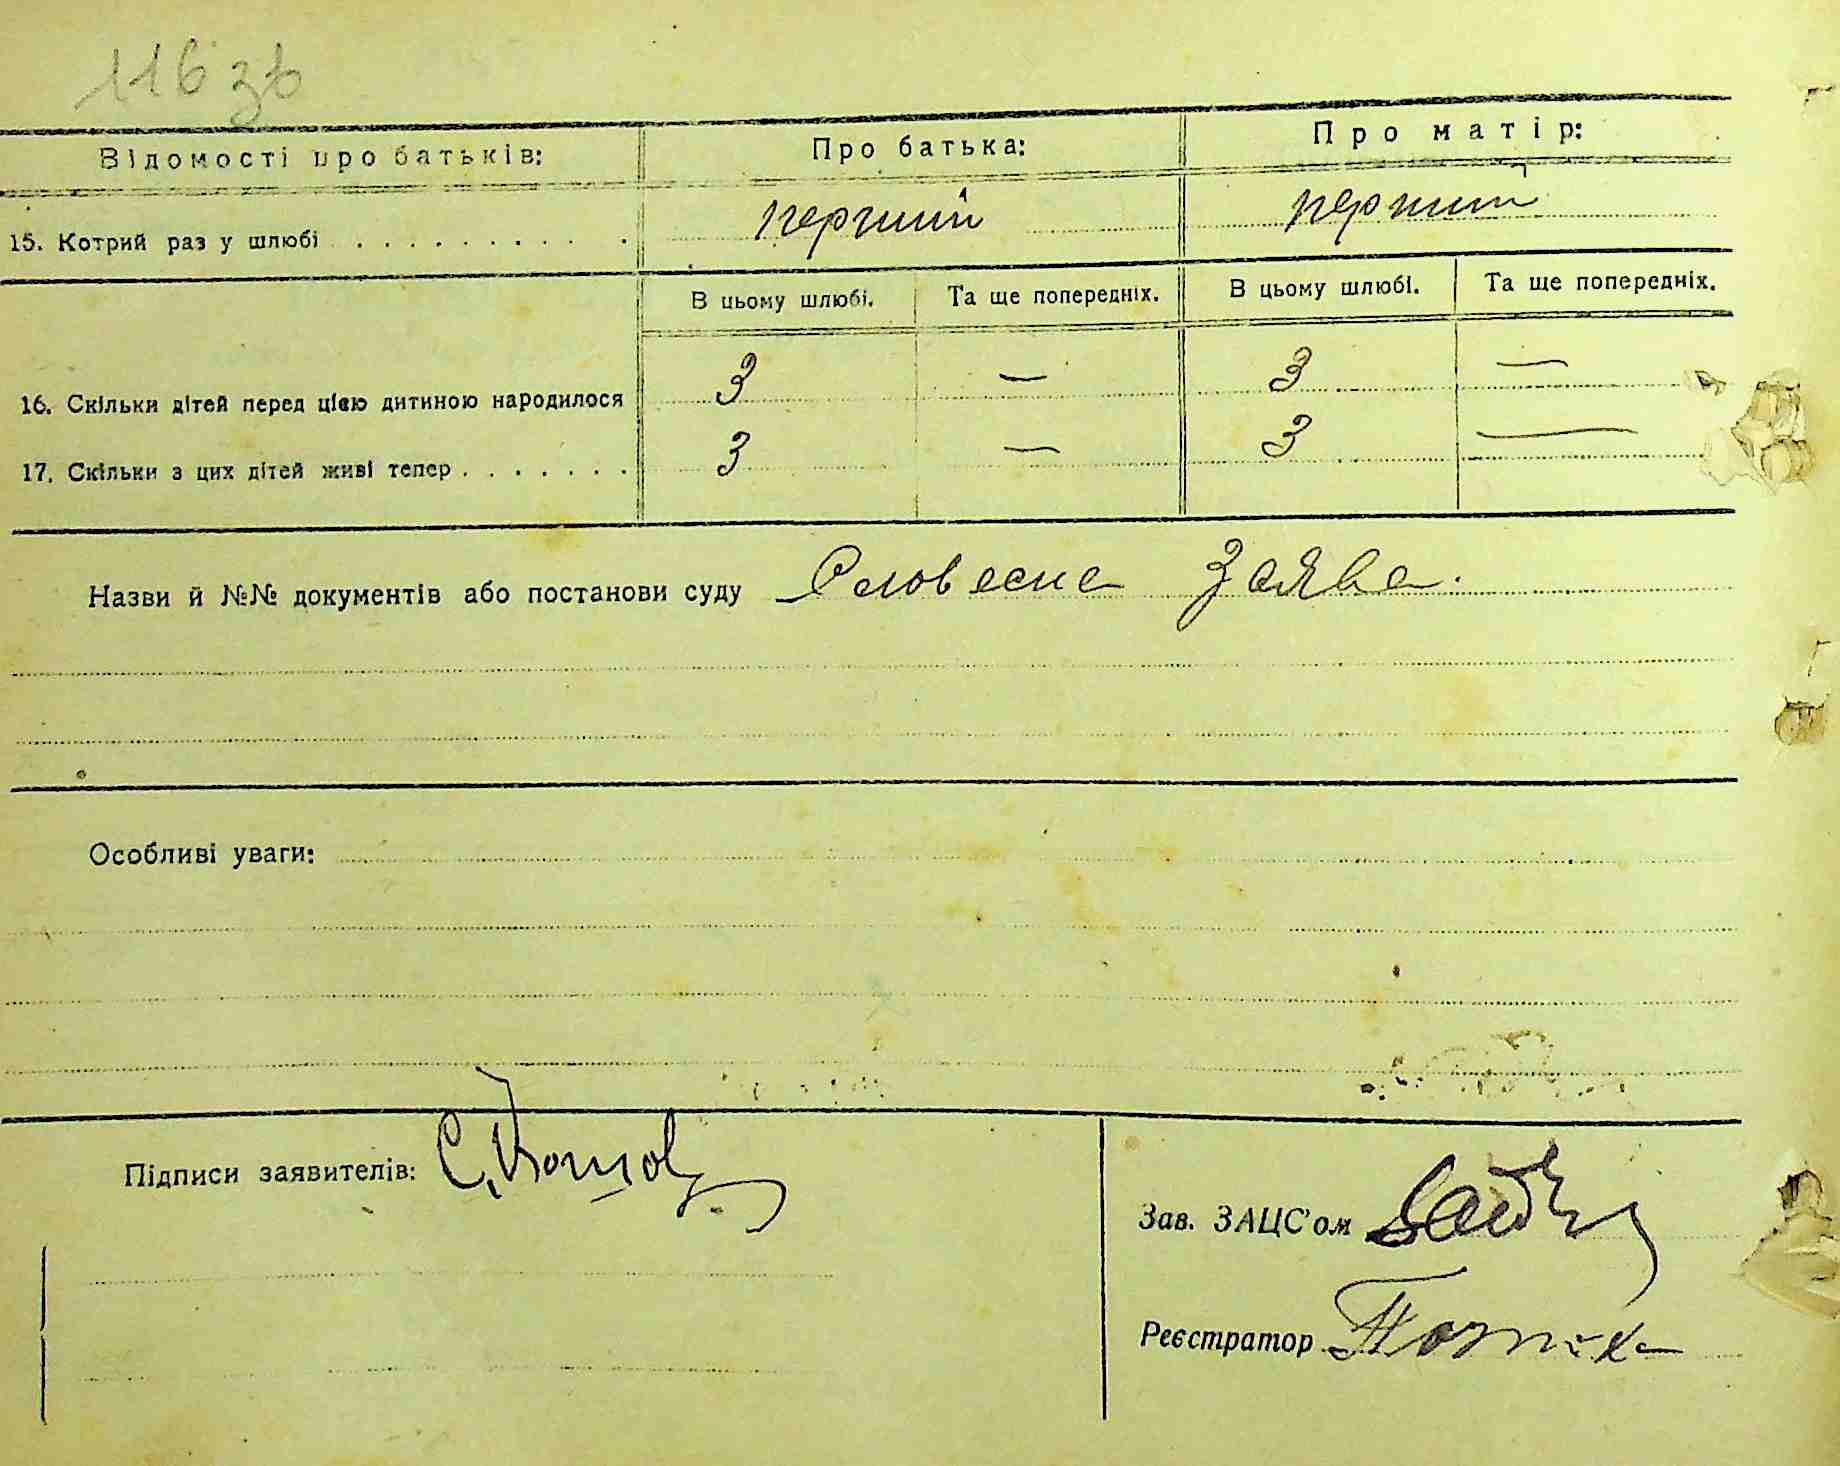 116 зв
Відомості про батьків: Про батька: Про матір:
15. Котрий раз у шлюбі . . . . . . . . . . . перший перший
В цьому шлюбі. Та ще попередніх. В цьому шлюбі. Та ще попередніх.
16. Скільки дітей перед цією дитиною народилося 3 — 3 —
17. Скільки з цих дітей живі тепер . . . . . . . 3 — 3 —
Назви й №№ документів або постанови суду Словесна Заява.
Особливі уваги:
Підписи заявителів: С.
Зав. ЗАЦС'ом
Реєстратор